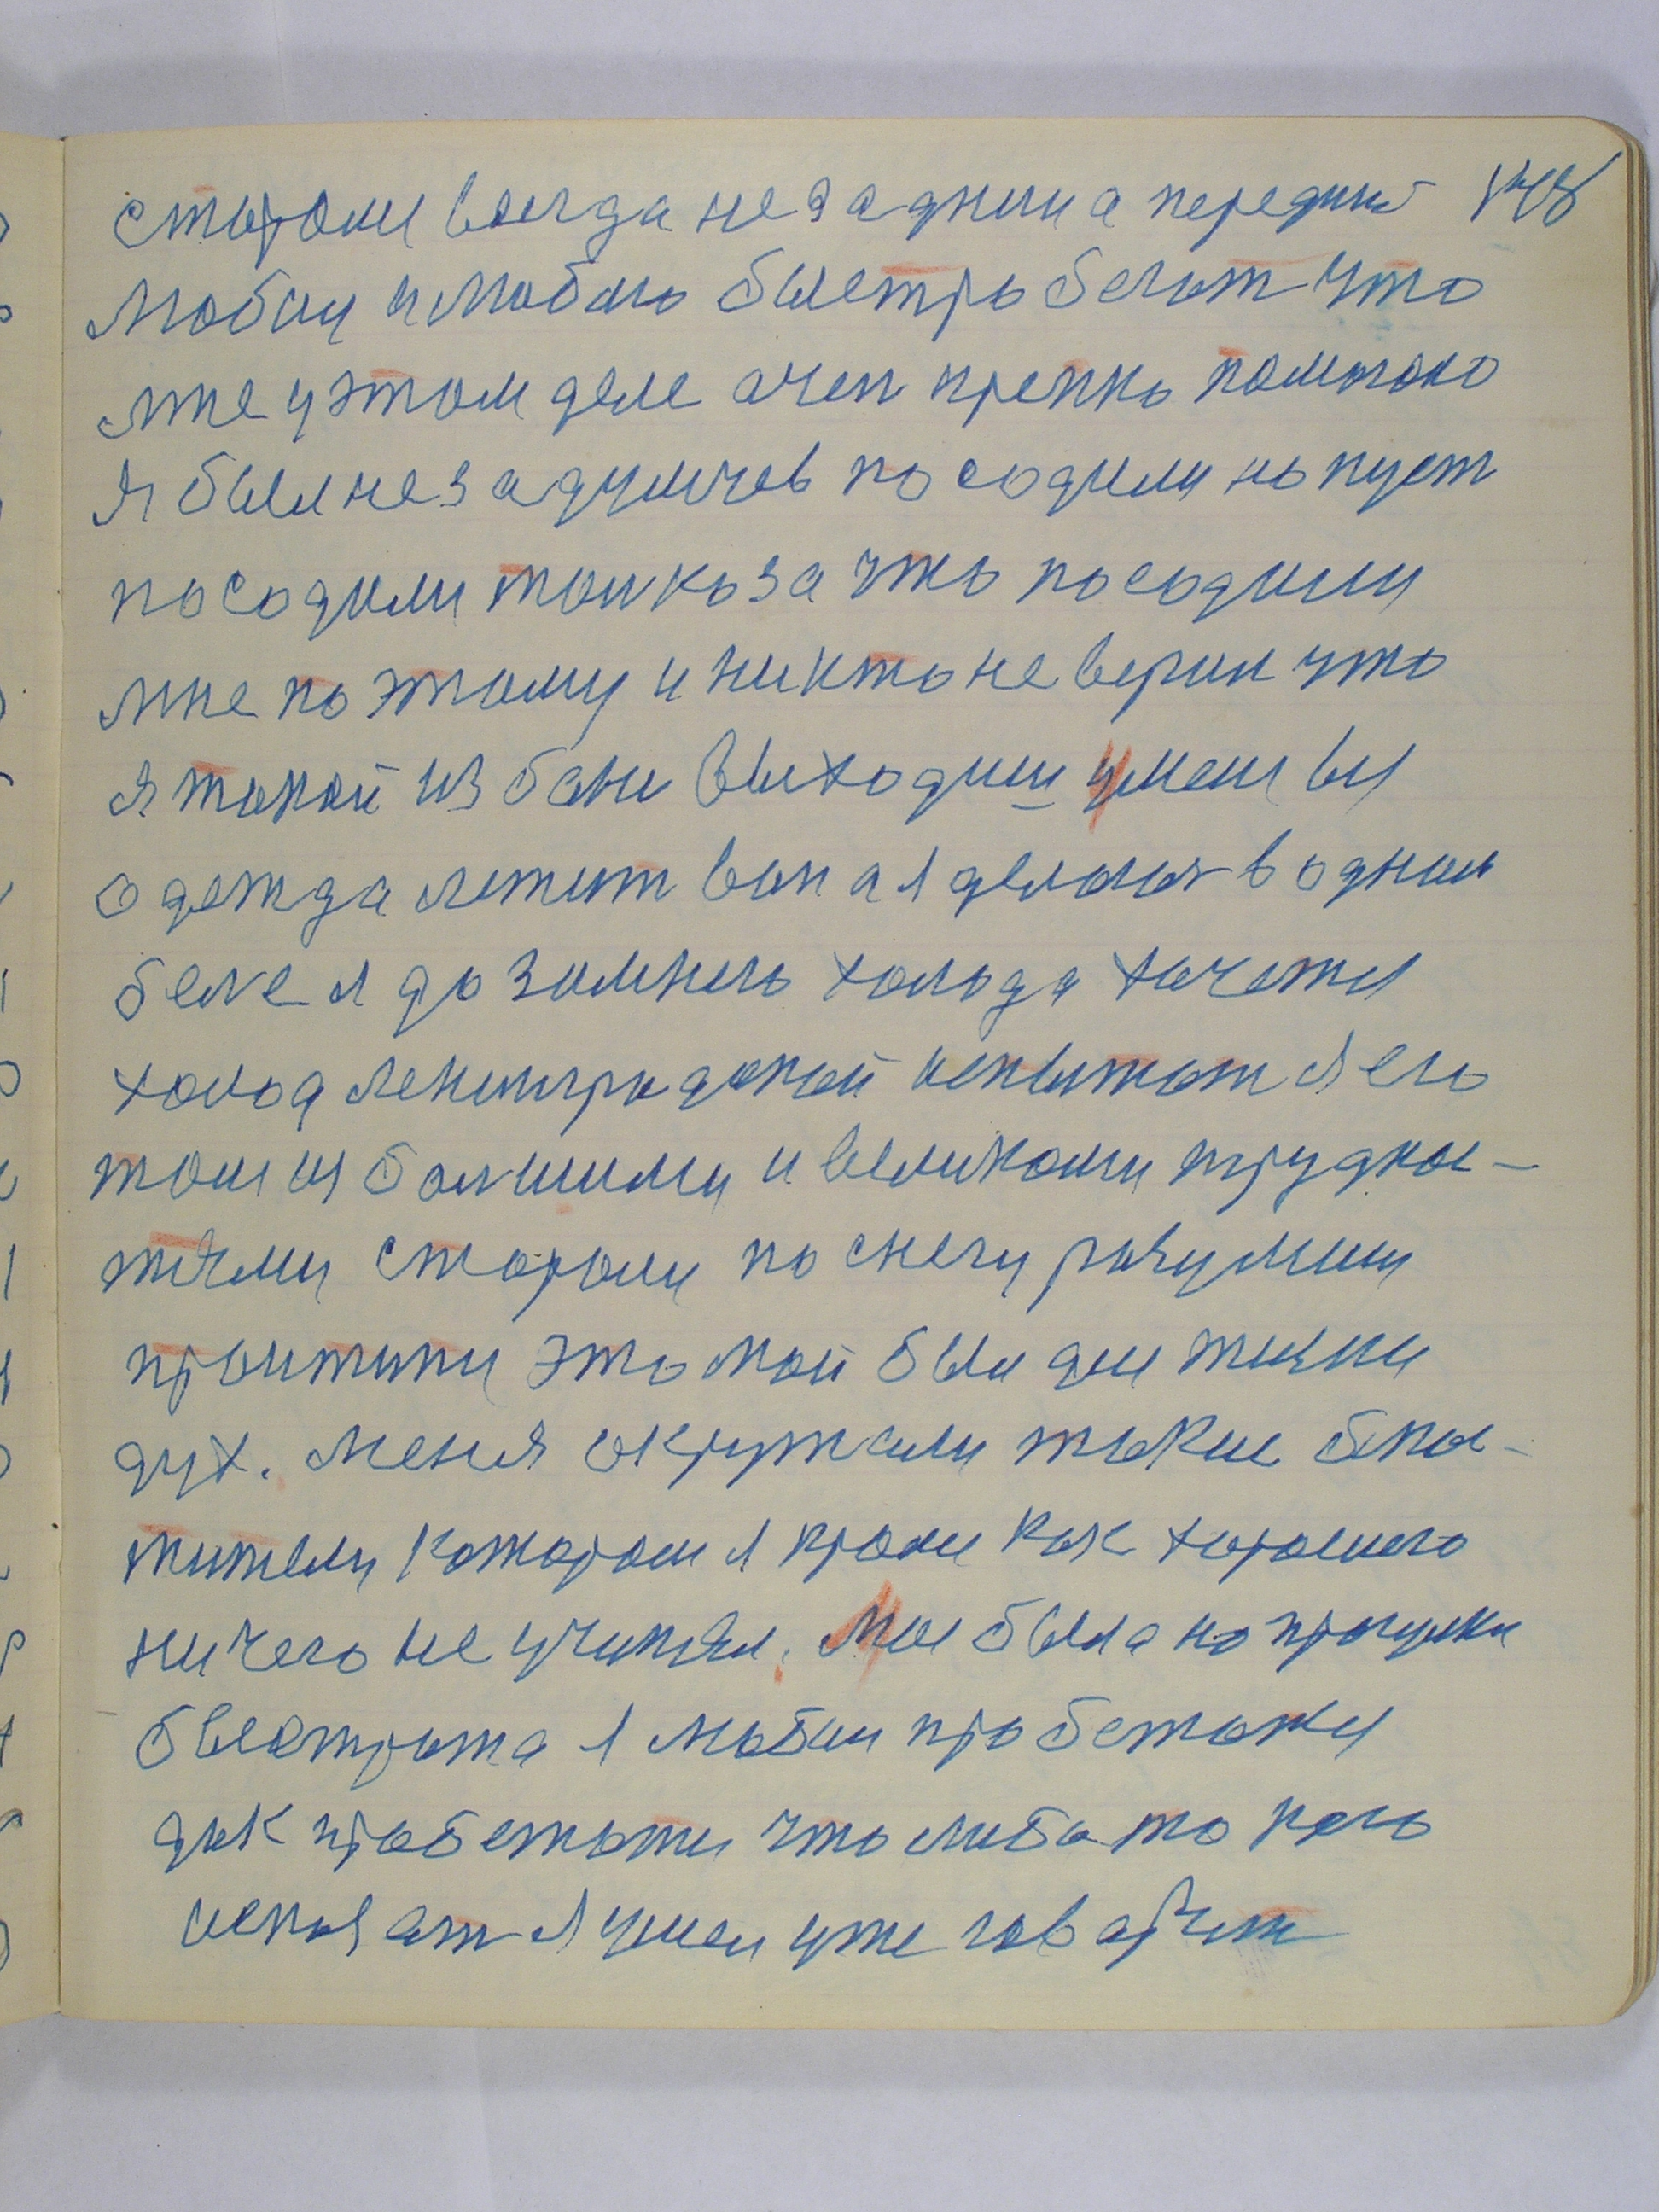 148
стараюсь всегда не задним а передним
любил и люблю быстро бегат что
мне у этом деле очен крепко помогало
Я был не задумчев посодили но пуст
посодили толко за что посодили
мне по этому и никто не верил что
я такой из бани выходил у меня вся
одежда летит вон а я делался в одном
беле я до зимнего холода хачется
холод ленинградской испытат я его
там из болшими и великоми труднос-
тями старался по снегу разумный
практики это мой был для жизни
дух. Меня окружали такие блю-
тители каторым я кроме как хорошего
ничего не учинял. Мне была на прогулки
быстрота я любил пробежатся
дак пробежатся что либо то кого
испугат я умел уже говарит